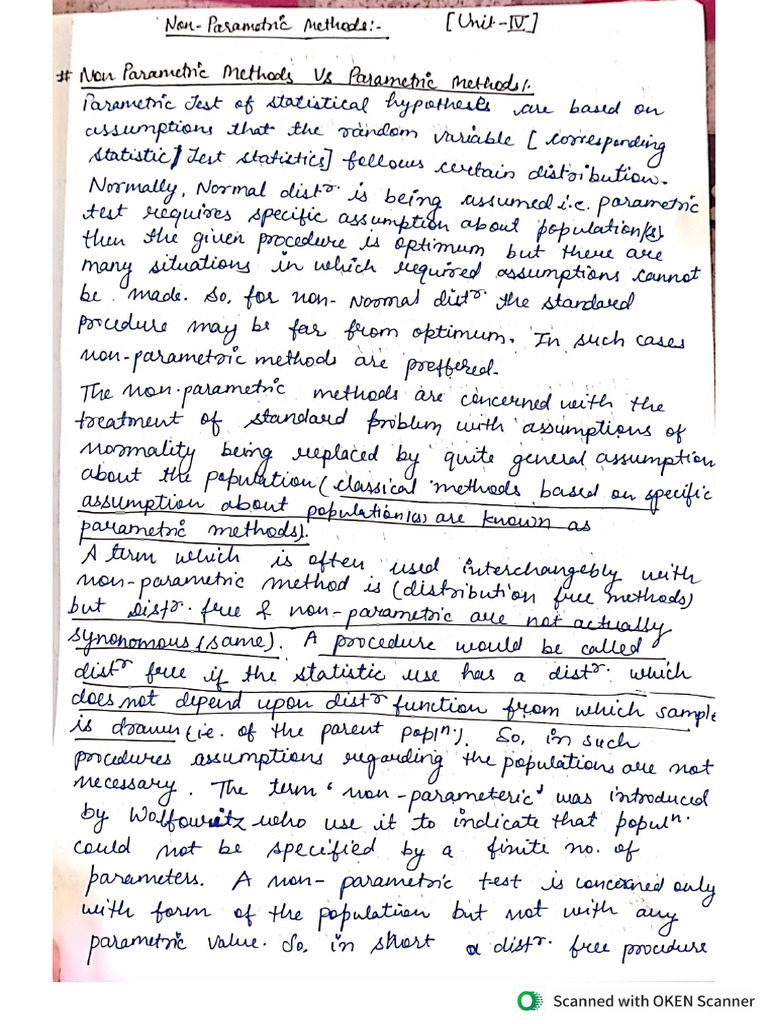 Non-Parametric Methods:- [Unit-IV]
# Non Parametric Methods Vs Parametric Methods:
Parametric Test of statistical hypothesis are based on
assumptions that the random variable [corresponding
statistic/Test statistics] follows certain distribution.
Normally, Normal distr. is being assumed i.e. parametric
test requires specific assumption about population(s)
then the given procedure is optimum but there are
many situations in which required assumptions cannot
be made. So, for non-Normal distr. the standard
procedure may be far from optimum. In such cases
non-parametric methods are preffered.
The non-parametric methods are concerned with the
treatment of standard problem with assumptions of
normality being replaced by quite general assumption
about the population (classical methods based on specific
assumption about population(s) are known as
parametric methods).
A term which is often used interchangebly with
non-parametric method is (distribution free methods)
but distr. free & non-parametric are not actually
synonomous (same). A procedure would be called
distr free if the statistic use has a distr. which
does not depend upon distr function from which sample
is drawn (i.e. of the parent popln.). So, in such
procedures assumptions regarding the populations are not
necessary. The term 'non-parameteric' was introduced
by Wolfowitz who use it to indicate that populn.
could not be specified by a finite no. of
parameters. A non-parametric test is concerned only
with form of the population but not with any
parametric value. So, in short a distr. free procedure
Scanned with OKEN Scanner